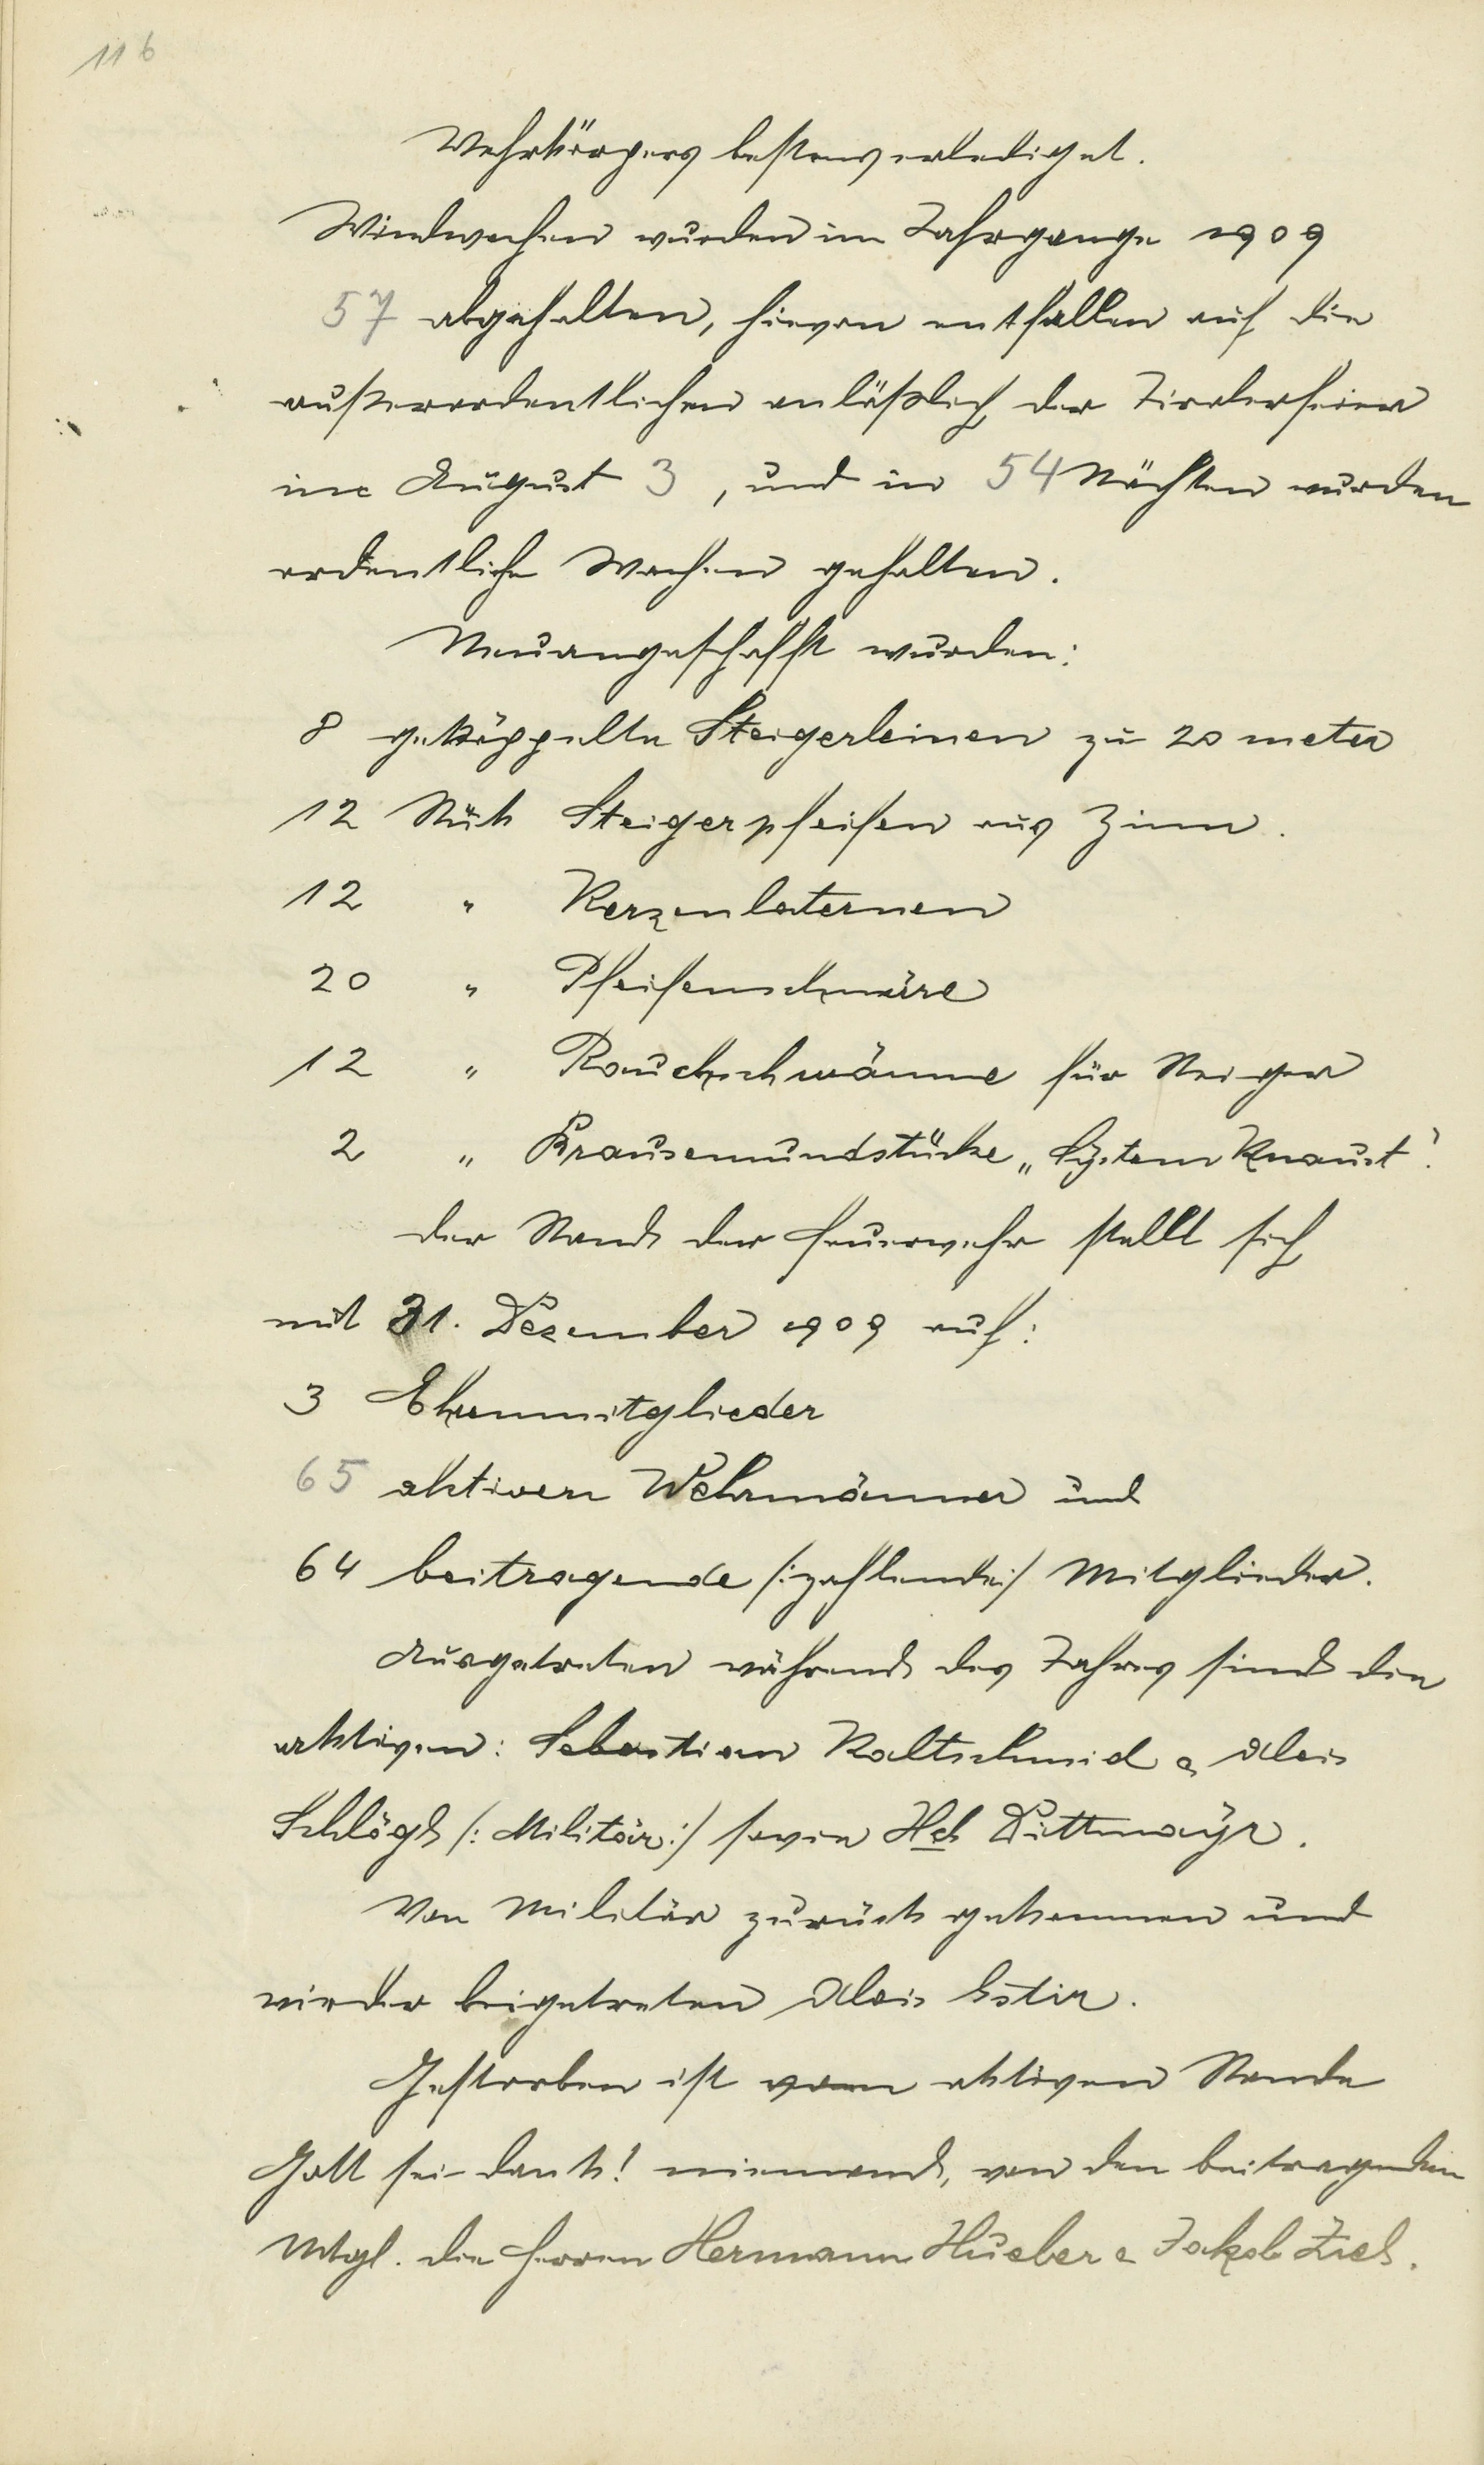 116
Wehrkörpers bestens erlediget.
Windwachen wurden im Jahrgange 1909
57 abgehalten, hievon entfallen auf die
außerordentlichen anläßlich der Tirolerfeier
im August 3, und in 54 Nächten wurden
ordentliche Wachen gehalten.
Neuangeschafft wurden:
8 geköppelte Steigerleinen zu 20 meter
12 Stück Steigerpfeifen aus Zinn.
12 " Kerzenlaternen
20 " Pfeifenschnüre
12 " Rauchschwämme für Steiger
2 " Brausemundstücke „System Knaust".
Der Stand der Feuerwehr stellt sich
mit 31. Dezember 1909 auf:
3 Ehrenmitglieder
65 aktiven Wehrmänner und
64 beitragende /:zahlende:/ Mitglieder.
Ausgetreten während des Jahres sind die
aktiven: Sebastian Kaltschmid & Alois
Schlögl /: Militär:/ sowie Hch Dittmayr.
Von Militär zurück gekommen und
wieder beigetreten Alois
Gestorben ist vom aktiven Stande
Gott sei dank! niemand, von den beitragenden
Mtgl. die Herren Hermann Hueber & Jakob